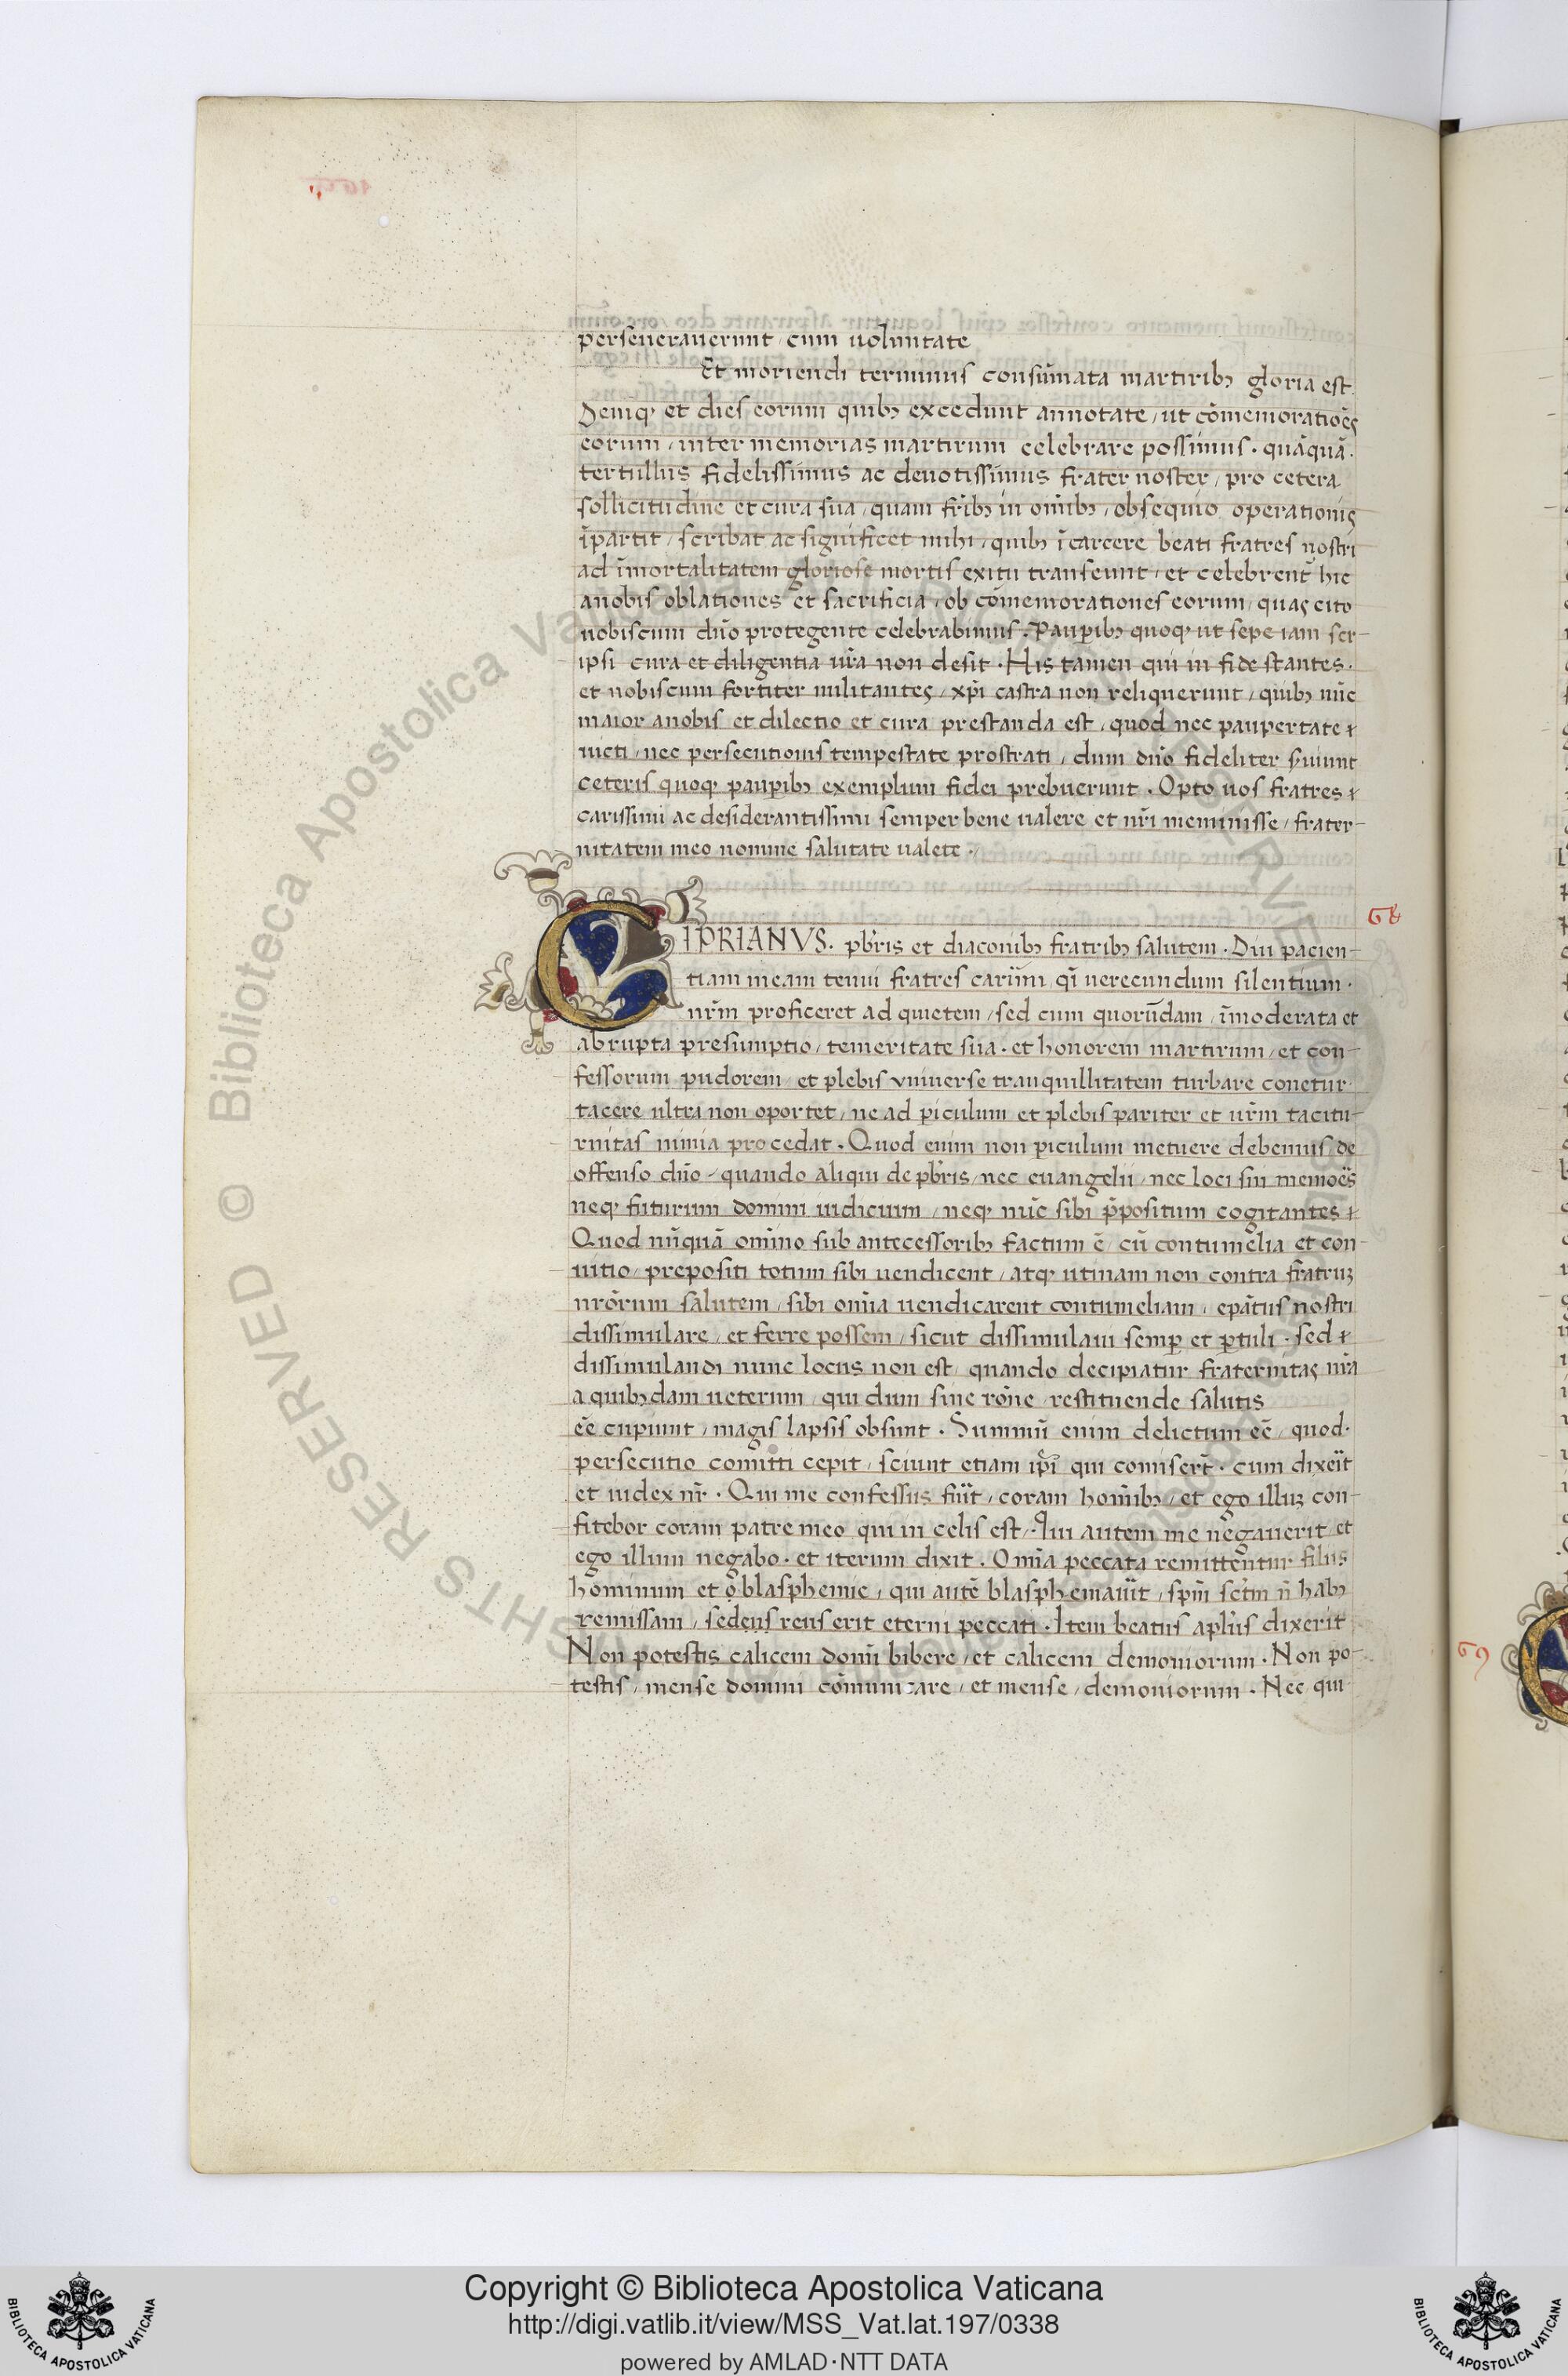 perseuerauerunt cum uoluntate
Et moriendi terminus consūmata martiribꝫ gloria est.
Deniqꝫ et dies eorum quibꝫ excedunt annotate, ut cōmemoratiōēs
eorum, inter memorias martirum celebrare possimus. quāquā.
tertullus fidelissimus ac deuotissimus frater noster, pro cetera
sollicitudine et cura sua, quam fr̄ibꝫ in om̄ibꝫ, obsequio operationis
īpartit, scribat ac significet mihi, quibꝫ īcarcere beati fratres nostri
ad īmortalitatem gloriose mortis exitu transeunt, et celebrent̄ hic
anobis oblationes et sacrificia, ob cōmemorationes eorum, quas cito
uobiscum dn̄o protegente celebrabimus. Paup̱ibꝫ quoqꝫ ut sepe iam scr-
ipsi cura et diligentia ur̄a non desit. His tamen qui in fide stantes.
et nobiscum fortiter militantes, xp̄i castra non reliquerunt, quibꝫ nūc
maior anobis et dilectio et cura prestanda est, quod nec paupertate
uicti, nec persecutionis tempestate prostrati, dum dn̄o fideliter s̄uiunt
ceteris quoqꝫ paup̱ibꝫ exemplum fidei prebuerunt. Opto uos fratres
carissimi ac desiderantissimi semper bene ualere et nr̄i meminisse, frater-
nitatem meo nomine salutate ualete.
68
CIPRIANVS. pb̄ris et diaconibꝫ fratribꝫ salutem. Diu pacien-
tiam meam tenui fratres carīīm, qī uerecundum silentium.
nr̄m proficeret ad quietem, sed cum quorūdam, īmoderata et
abrupta presumptio, temeritate sua. et honorem martirum, et con-
fessorum pudorem, et plebis vniuerse tranquillitatem turbare conetur
tacere ultra non oportet, ne ad p̱iculum et plebis pariter et ur̄m tacitu-
rnitas nimia procedat. Quod enim non p̱iculum metuere debemus, de
offenso dn̄o, quando aliqui de pb̄ris, nec euangelii, nec loci sui memōēs
neqꝫ futurum domini iudicium, neqꝫ nūc sibi p̄positum cogitantes
Quod nūquā omīno sub antecessoribꝫ factum ē, cū contumelia et con-
uitio, prepositi totum sibi uendicent, atqꝫ utinam non contra fratruꝫ
nrōrum salutem, sibi om̄ia uendicarent contumeliam, epātus nostri
dissimulare, et ferre possem, sicut dissimulaui semp̱ et p̱tuli. sed
dissimulandi nunc locus non est, quando decipiatur fraternitas nr̄a
a quibꝫdam ueterum, qui dum sine rōne, restituende salutis
ēē cupiunt, magis lapsis obsunt. Summū enim delictum eē, quod.
persecutio comitti cepit, sciunt etiam ip̄i qui comisert̄. cum dixēit
et iudex nr̄. Qui me confessus fūīt, coram homībꝫ, et ego illuꝫ con-
fitebor coram patre meo qui in celis est, Qui autem me negauerit et
ego illum negabo. et iterum dixit. Om̄ia peccata remittentur filiis
hominum et blasphemie, qui autē blasphemauīt, spm̄ sctm̄ n̄ habꝫ
remissam, sed eus reus erit eterni peccati. Item beatus apl̄us dixerit
Non potestis calicem domī bibere, et calicem demoniorum. Non po-
testis, mense domini cōmunicare, et mense, demoniorum. Nec qui
69
Copyright © Biblioteca Apostolica Vaticana
http://digi.vatlib.it/view/MSS_Vat.lat.197/0338
powered by AMLAD·NTT DATA
BIBLIOTECA APOSTOLICA VATICANA
BIBLIOTECA APOSTOLICA VATICANA